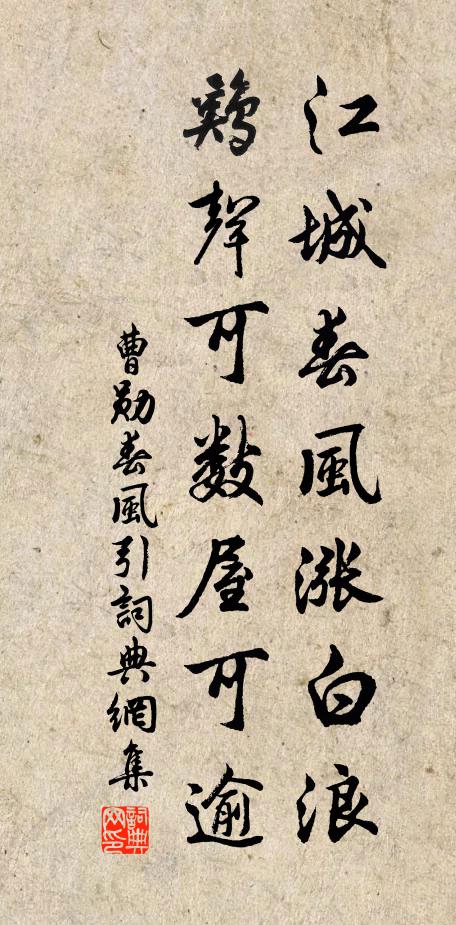 江城春風漲白浪
鷄聲可數屋可逾
曹勛春風引詞典網集
詞典網印